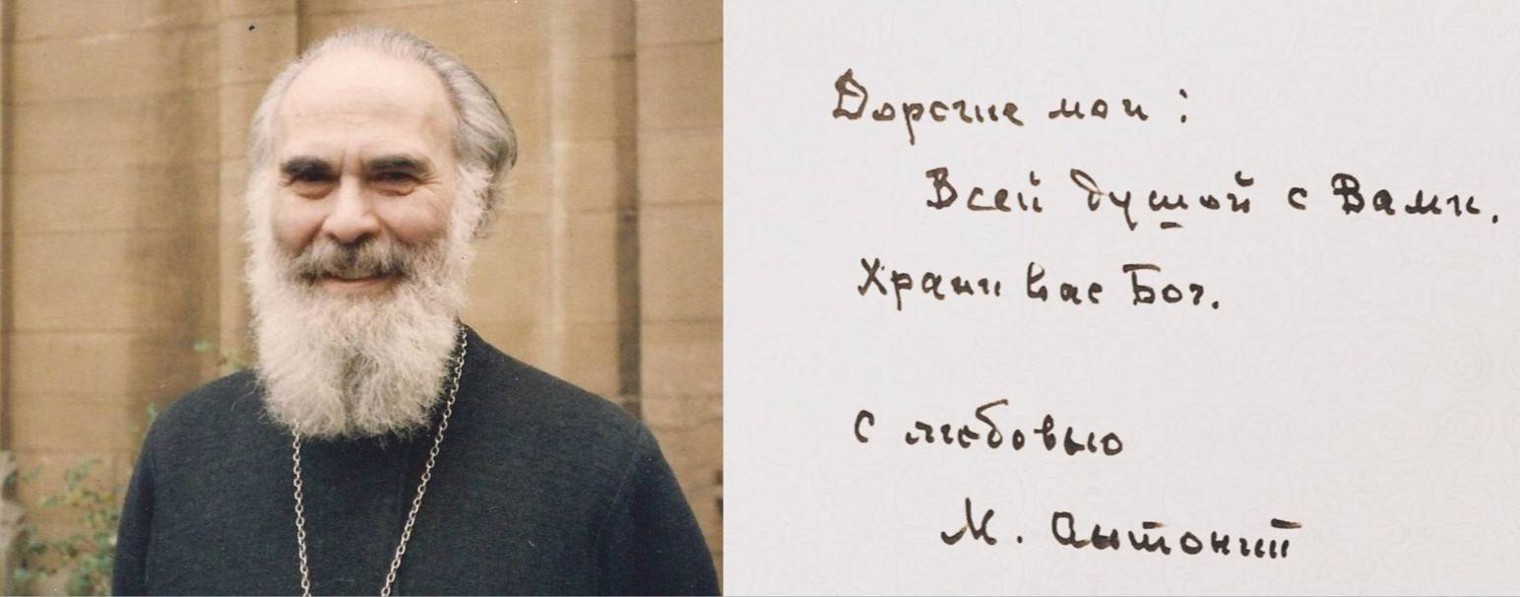 Дорогие мои:
Всей душой с Вами.
Храни вас Бог.
с любовью
М. Антоний